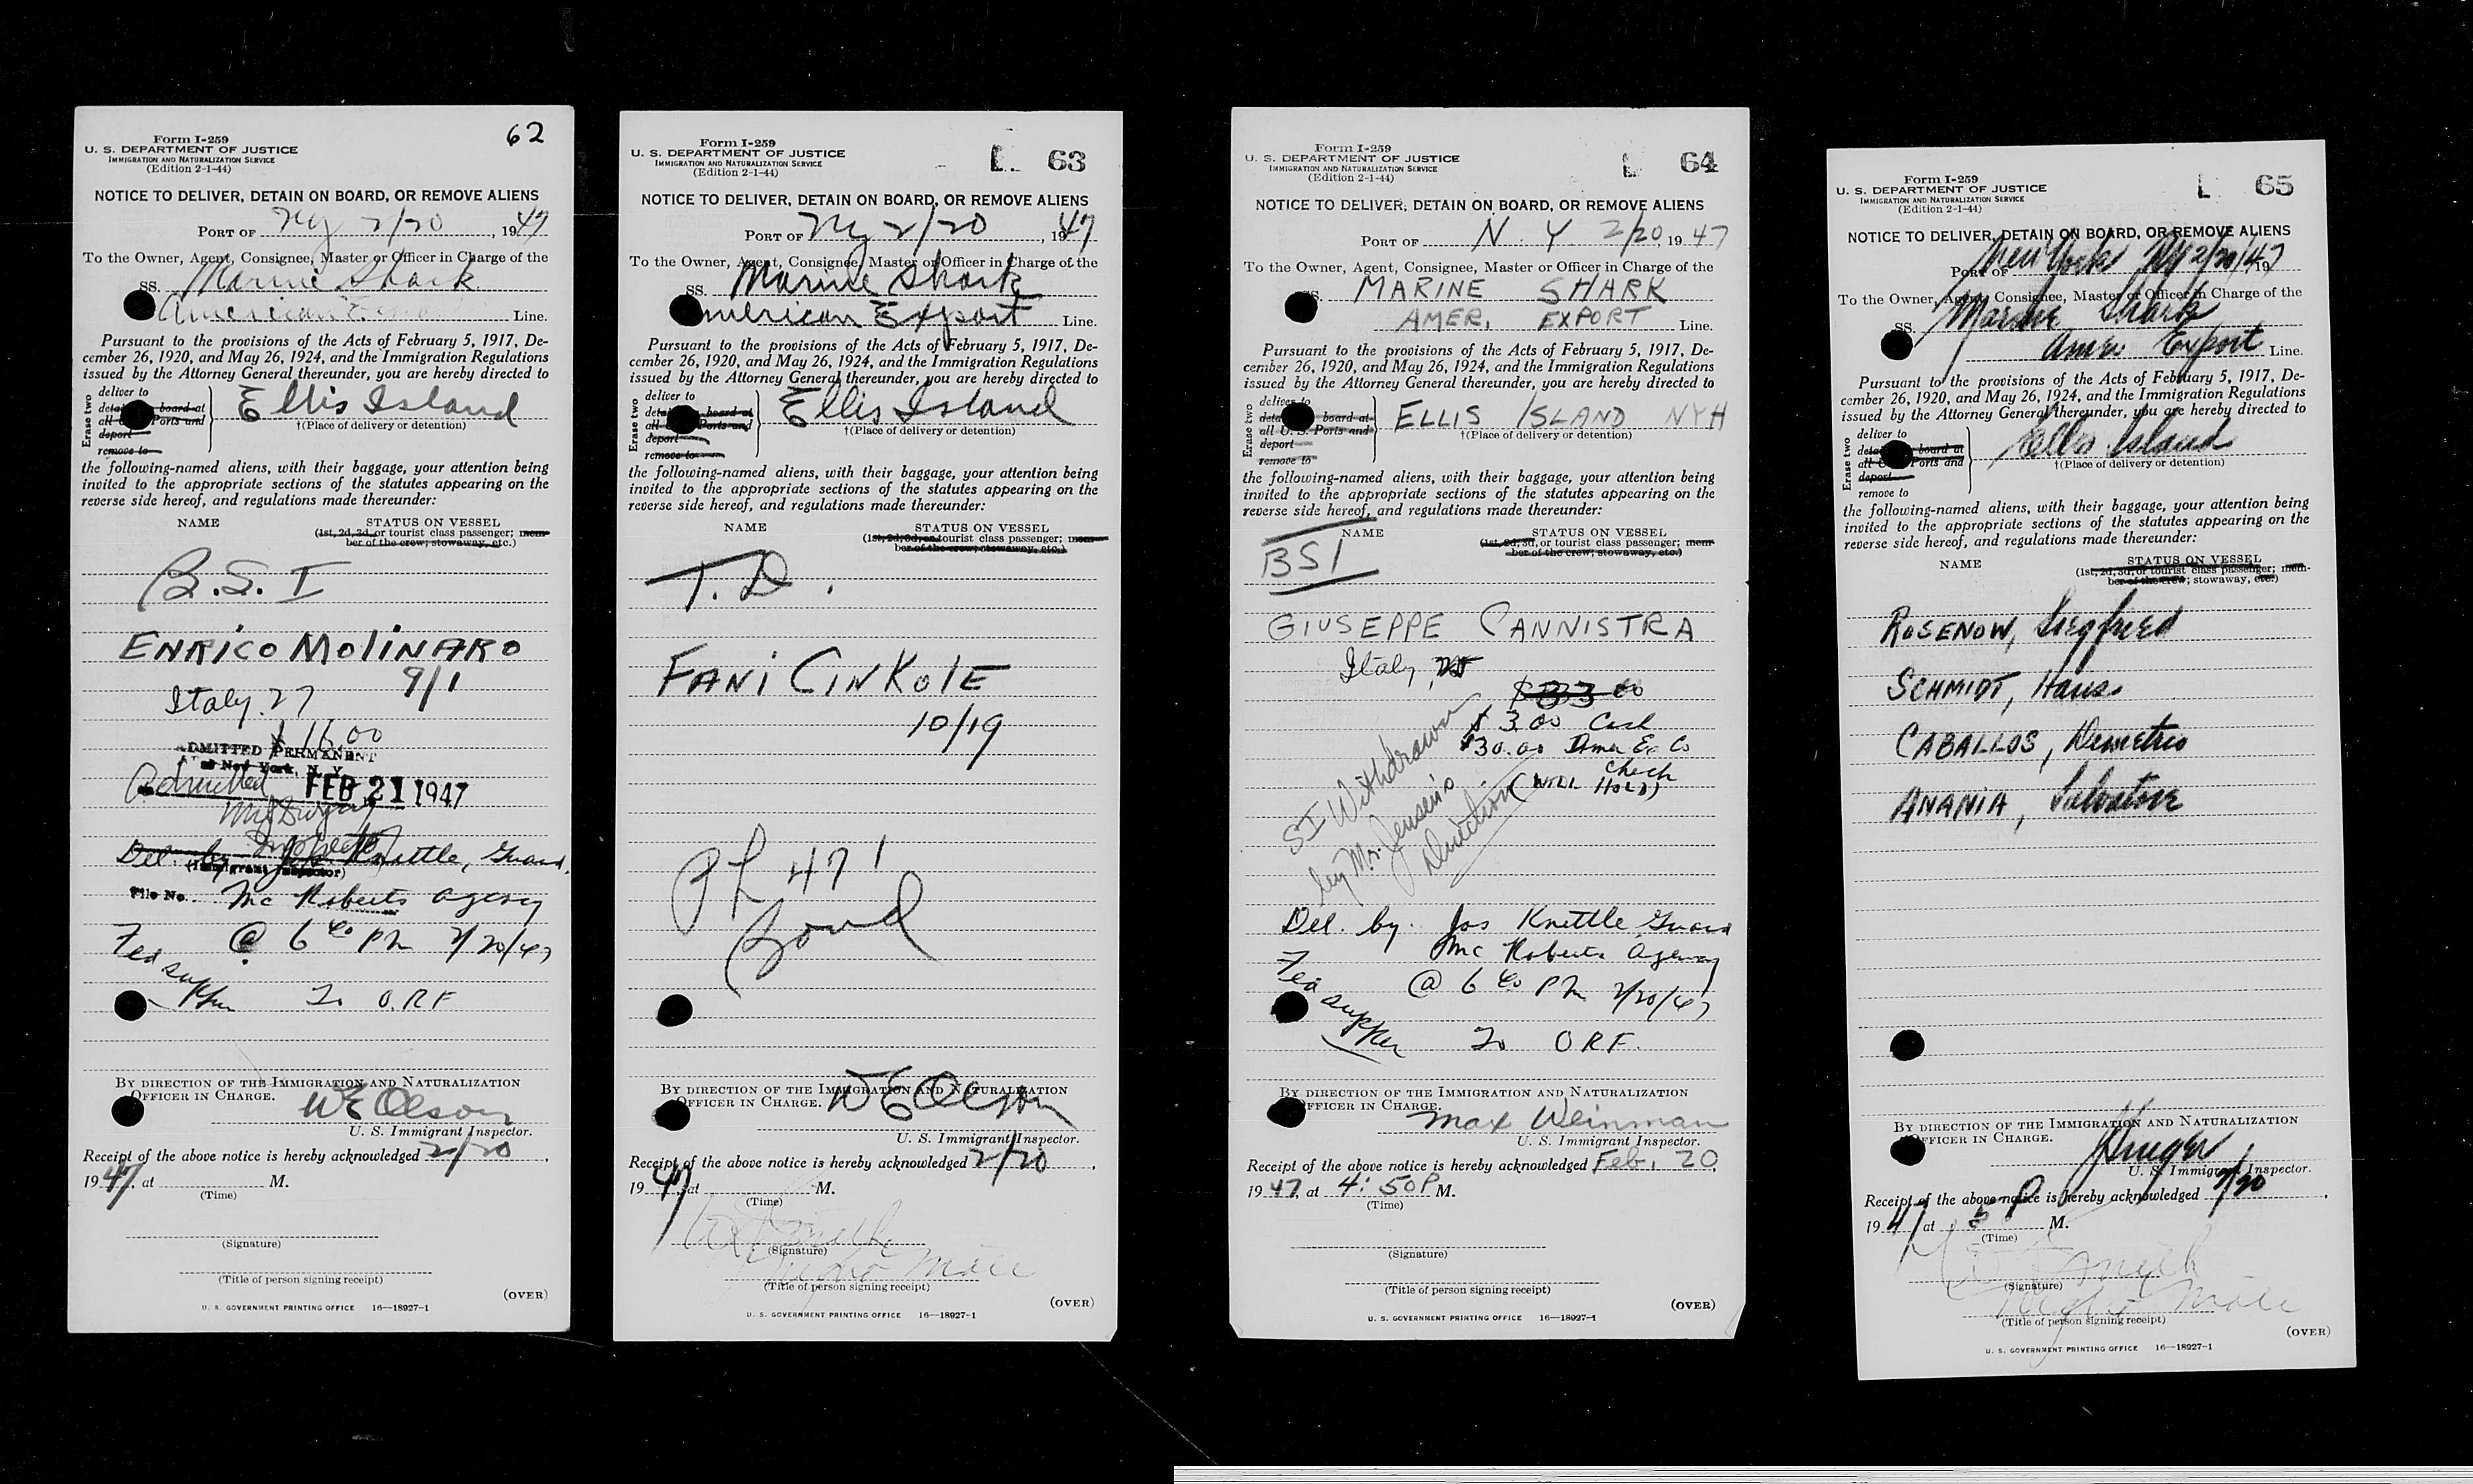 Form I-259
U. S. DEPARTMENT OF JUSTICE
IMMIGRATION AND NATURALIZATION SERVICE
(Edition 2-1-44)
62
NOTICE TO DELIVER, DETAIN ON BOARD, OR REMOVE ALIENS
PORT OF NY 2/20, 1947
To the Owner, Agent, Consignee, Master or Officer in Charge of the
SS. Marine Shark
American Line.
Pursuant to the provisions of the Acts of February 5, 1917, De-
cember 26, 1920, and May 26, 1924, and the Immigration Regulations
issued by the Attorney General thereunder, you are hereby directed to
Erase two
deliver to
board at
all Ports and
deport
remove to
Ellis Island
†(Place of delivery or detention)
the following-named aliens, with their baggage, your attention being
invited to the appropriate sections of the statutes appearing on the
reverse side hereof, and regulations made thereunder:
NAME STATUS ON VESSEL
(1st, 2d, 3d, or tourist class passenger; mem-
ber of the crew; stowaway, etc.)
B.S.I
ENRICO MOLINARO
9/1
Italy. 27
$16.00
ADMITTED PERMANENT
at New York, N. Y.
Admitted FEB 21 1947
Del. by Jos Knettle, Guard.
(Immigrant Inspector)
File No. Mc Roberts agency
Fed supper @ 6 40 PM 2/20/47
To O.R F
BY DIRECTION OF THE IMMIGRATION AND NATURALIZATION
OFFICER IN CHARGE.
WE Olson
U. S. Immigrant Inspector.
Receipt of the above notice is hereby acknowledged 2/20,
1947, at M.
(Time)
(Signature)
(Title of person signing receipt)
(OVER)
U. S. GOVERNMENT PRINTING OFFICE 16—18927-1
Form I-259
U. S. DEPARTMENT OF JUSTICE
IMMIGRATION AND NATURALIZATION SERVICE
(Edition 2-1-44)
L. 63
NOTICE TO DELIVER, DETAIN ON BOARD, OR REMOVE ALIENS
PORT OF NY 2/20, 1947
To the Owner, Agent, Consignee, Master or Officer in Charge of the
SS. Marine Shark
American Export Line.
Pursuant to the provisions of the Acts of February 5, 1917, De-
cember 26, 1920, and May 26, 1924, and the Immigration Regulations
issued by the Attorney General thereunder, you are hereby directed to
Erase two
deliver to
board at
all Ports and
deport
remove to
Ellis Island
†(Place of delivery or detention)
the following-named aliens, with their baggage, your attention being
invited to the appropriate sections of the statutes appearing on the
reverse side hereof, and regulations made thereunder:
NAME STATUS ON VESSEL
(1st, 2d, 3d, or tourist class passenger; mem-
ber of the crew; stowaway, etc.)
T. D.
FANI CINKOLE
10/19
PL 471
Bond
BY DIRECTION OF THE IMMIGRATION AND NATURALIZATION
OFFICER IN CHARGE.
WE Olson
U. S. Immigrant Inspector.
Receipt of the above notice is hereby acknowledged 2/20,
1947, at M.
(Time)
(Signature)
(Title of person signing receipt)
(OVER)
U. S. GOVERNMENT PRINTING OFFICE 16—18927-1
Form I-259
U. S. DEPARTMENT OF JUSTICE
IMMIGRATION AND NATURALIZATION SERVICE
(Edition 2-1-44)
L 64
NOTICE TO DELIVER, DETAIN ON BOARD, OR REMOVE ALIENS
PORT OF N. Y. 2/20, 1947
To the Owner, Agent, Consignee, Master or Officer in Charge of the
MARINE SHARK
AMER. EXPORT Line.
Pursuant to the provisions of the Acts of February 5, 1917, De-
cember 26, 1920, and May 26, 1924, and the Immigration Regulations
issued by the Attorney General thereunder, you are hereby directed to
Erase two
deliver to
board at
all U. S. Ports and
deport
remove to
ELLIS ISLAND NYH
†(Place of delivery or detention)
the following-named aliens, with their baggage, your attention being
invited to the appropriate sections of the statutes appearing on the
reverse side hereof, and regulations made thereunder:
NAME STATUS ON VESSEL
(1st, 2d, 3d, or tourist class passenger; mem-
ber of the crew; stowaway, etc.)
BSI
GIUSEPPE CANNISTRA
Italy,
$ 3.00 Cash
$30.00 Amer Ex Co
Check
(WILL HOLD)
SI Withdrawn
by Mr. Jensen's
Direction
Del. by. Jos Knettle Guard
Mc Roberts agency
Fed supper @ 6 40 PM 2/20/47
To ORF.
BY DIRECTION OF THE IMMIGRATION AND NATURALIZATION
OFFICER IN CHARGE.
Max Weinman
U. S. Immigrant Inspector.
Receipt of the above notice is hereby acknowledged Feb. 20,
1947, at 4:50P M.
(Time)
(Signature)
(Title of person signing receipt)
(OVER)
U. S. GOVERNMENT PRINTING OFFICE 16—18927-1
Form I-259
U. S. DEPARTMENT OF JUSTICE
IMMIGRATION AND NATURALIZATION SERVICE
(Edition 2-1-44)
L 65
NOTICE TO DELIVER, DETAIN ON BOARD, OR REMOVE ALIENS
PORT OF New York NY 2/20/47 19
To the Owner, Agent, Consignee, Master or Officer in Charge of the
SS. Marine Shark
Amer Export Line.
Pursuant to the provisions of the Acts of February 5, 1917, De-
cember 26, 1920, and May 26, 1924, and the Immigration Regulations
issued by the Attorney General thereunder, you are hereby directed to
Erase two
deliver to
board at
all Ports and
deport
remove to
Ellis Island
†(Place of delivery or detention)
the following-named aliens, with their baggage, your attention being
invited to the appropriate sections of the statutes appearing on the
reverse side hereof, and regulations made thereunder:
NAME STATUS ON VESSEL
(1st, 2d, 3d, or tourist class passenger; mem-
ber of the crew; stowaway, etc.)
ROSENOW, Siegfried
SCHMIDT, Hans
CABALLOS, Demetrio
ANANIA, Salvatore
BY DIRECTION OF THE IMMIGRATION AND NATURALIZATION
OFFICER IN CHARGE.
U. S. Immigrant Inspector.
Receipt of the above notice is hereby acknowledged 2/20,
1947 at M.
(Time)
(Signature)
(Title of person signing receipt)
(OVER)
U. S. GOVERNMENT PRINTING OFFICE 16—18927-1